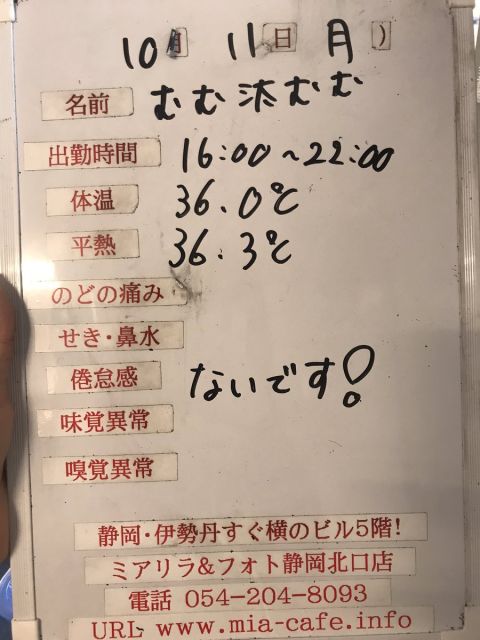 10月 11日 月)
名前 むむ沫むむ
出勤時間 16:00~22:00
体温 36.0℃
平熱 36.3℃
のどの痛み
せき・鼻水
倦怠感 ないです!
味覚異常
嗅覚異常
静岡・伊勢丹すぐ横のビル5階!
ミアリラ&フォト静岡北口店
電話 054-204-8093
URL www.mia-cafe.info